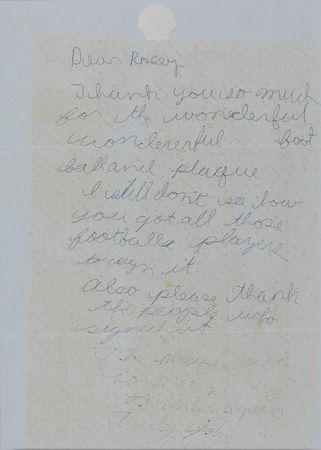 Dear Rosey
Thank you so much
for the wonderful
wondererful... foot
ball and plaque
I still don't see how
you got all those
footballs players
to sign it.
Also please thank
the people who
signed it
The
so
Thanks again